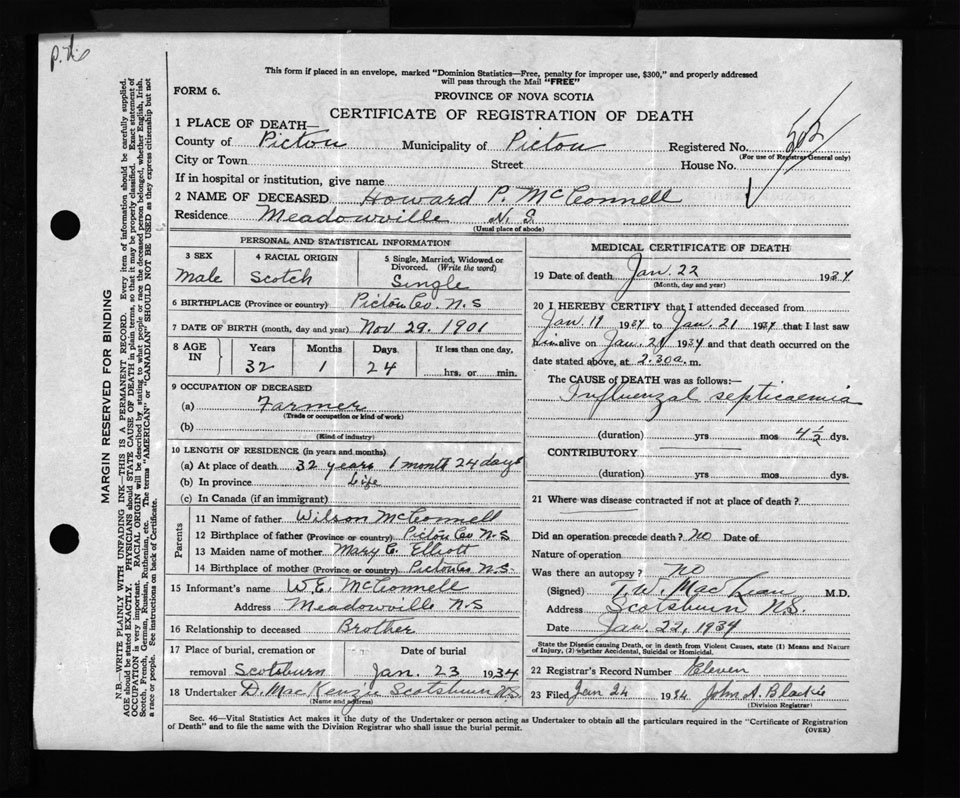 This form if placed in an envelope, marked "Dominion Statistics—Free, penalty for improper use, $300," and properly addressed
will pass through the Mail "FREE"
FORM 6.
PROVINCE OF NOVA SCOTIA
CERTIFICATE OF REGISTRATION OF DEATH
1 PLACE OF DEATH—
County of Pictou Municipality of Pictou Registered No.
(For use of Registrar General only)
City or Town Street House No.
If in hospital or institution, give name
2 NAME OF DECEASED Howard P. McConnell
Residence Meadowville N.S.
(Usual place of abode)
PERSONAL AND STATISTICAL INFORMATION
3 SEX 4 RACIAL ORIGIN 5 Single, Married, Widowed or Divorced. (Write the word)
Male Scotch Single
6 BIRTHPLACE (Province or country) Pictou Co. N.S
7 DATE OF BIRTH (month, day and year) Nov 29. 1901
8 AGE IN Years Months Days If less than one day,
32 1 24 hrs. or min.
9 OCCUPATION OF DECEASED
(a) Farmer
(Trade or occupation or kind of work)
(b)
(Kind of industry)
10 LENGTH OF RESIDENCE (in years and months)
(a) At place of death 32 years 1 month 24 days
(b) In province Life
(c) In Canada (if an immigrant)
Parents
11 Name of father Wilson McConnell
12 Birthplace of father (Province or country) Pictou Co N.S
13 Maiden name of mother Mary E. Elliott
14 Birthplace of mother (Province or country) Pictou Co N.S.
15 Informant's name W.E. McConnell
Address Meadowville N.S
16 Relationship to deceased Brother
17 Place of burial, cremation or removal Scotsburn Date of burial Jan. 23 1934
18 Undertaker D. MacKenzie Scotsburn N.S.
(Name and address)
MEDICAL CERTIFICATE OF DEATH
19 Date of death Jan. 22 1934
(Month, day and year)
20 I HEREBY CERTIFY that I attended deceased from
Jan. 17 1934 to Jan. 21 1934 that I last saw
him alive on Jan. 21 1934 and that death occurred on the
date stated above, at 2.30 a. m.
The CAUSE of DEATH was as follows:—
Influenzal septicaemia
(duration) yrs mos 4½ dys.
CONTRIBUTORY
(duration) yrs mos dys.
21 Where was disease contracted if not at place of death?
Did an operation precede death? no Date of
Nature of operation
Was there an autopsy? no
(Signed) T.W. MacLean M.D.
Address Scotsburn N.S.
Date Jan 22, 1934
State the Disease causing Death, or in death from Violent Causes, state (1) Means and Nature of Injury, (2) whether Accidental, Suicidal or Homicidal.
22 Registrar's Record Number Eleven
23 Filed Jan 24 1934 John A. Blackie
(Division Registrar)
Sec. 46—Vital Statistics Act makes it the duty of the Undertaker or person acting as Undertaker to obtain all the particulars required in the "Certificate of Registration
of Death" and to file the same with the Division Registrar who shall issue the burial permit.
(OVER)
MARGIN RESERVED FOR BINDING
N.B.—WRITE PLAINLY WITH UNFADING INK—THIS IS A PERMANENT RECORD. Every item of information should be carefully supplied.
AGE should be stated EXACTLY. PHYSICIANS should STATE CAUSE OF DEATH in plain terms, so that it may be properly classified. Exact statement of
OCCUPATION is very important. RACIAL ORIGIN will be described by stating to what people or race the deceased person belonged, whether English, Irish,
Scotch, French, German, Russian, Ruthenian, etc. The terms "AMERICAN" or "CANADIAN" SHOULD NOT BE USED as they express citizenship but not
a race or people. See instructions on back of Certificate.